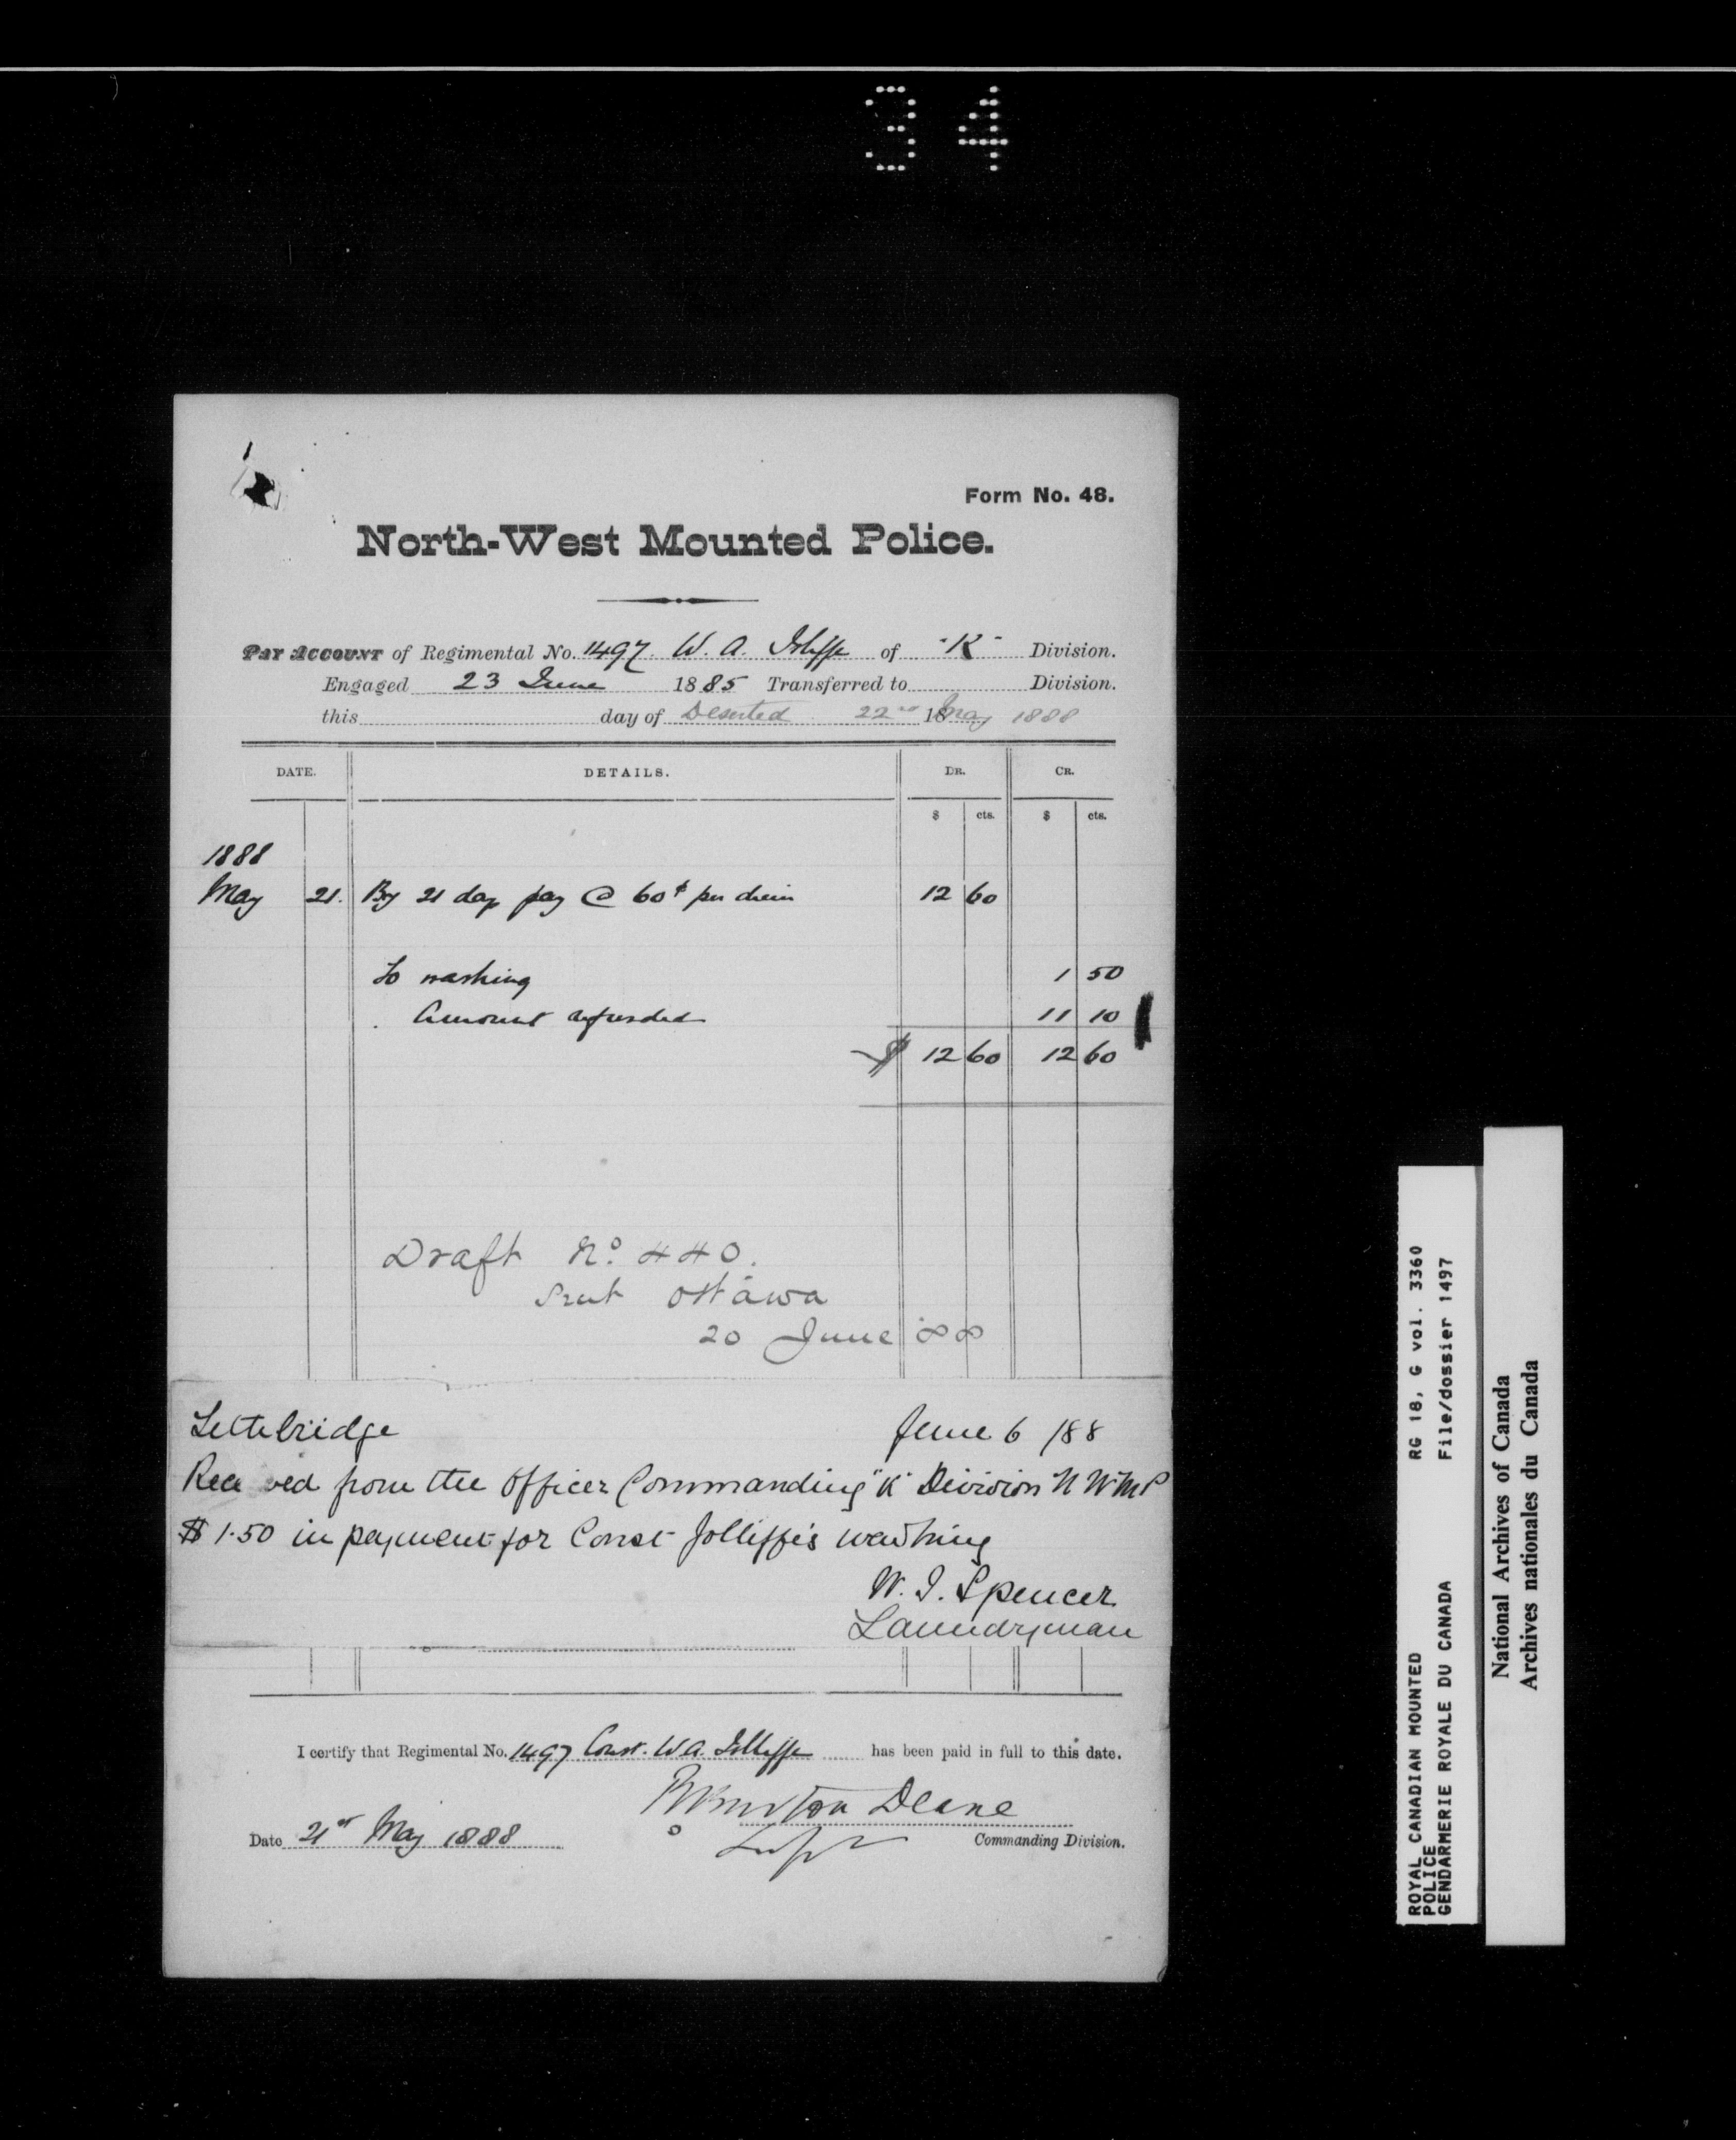 34
Form No. 48.
North-West Mounted Police.
Pay Account of Regimental No. 1497 W. A. Jolliffe of "K" Division.
Engaged 23 June 1885 Transferred to Division.
this day of Deserted 22nd 18 May 1888
DATE. DETAILS. DR. CR.
$ cts. $ cts.
1888
May 21. By 21 days pay @ 60¢ per diem 12 60
To washing 1 50
" Amount refunded 11 10
$ 12 60 12 60
Draft No. 440.
Sent Ottawa
20 June 88
Lethbridge June 6 /88
Received from the Officer Commanding "K" Division N W M P
$1.50 in payment for Const Jolliffe's washing
W. J. Spencer
Laundryman
I certify that Regimental No. 1497 Const. W. A. Jolliffe has been paid in full to this date.
R Burton Deane
Supt
Date 21st May 1888 Commanding Division.
ROYAL CANADIAN MOUNTED RG 18, G vol. 3360
POLICE
GENDARMERIE ROYALE DU CANADA File/dossier 1497
National Archives of Canada
Archives nationales du Canada